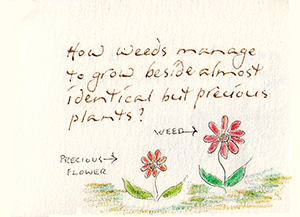 How weeds manage
to grow beside almost
identical but precious
plants?
WEED→
PRECIOUS→
FLOWER